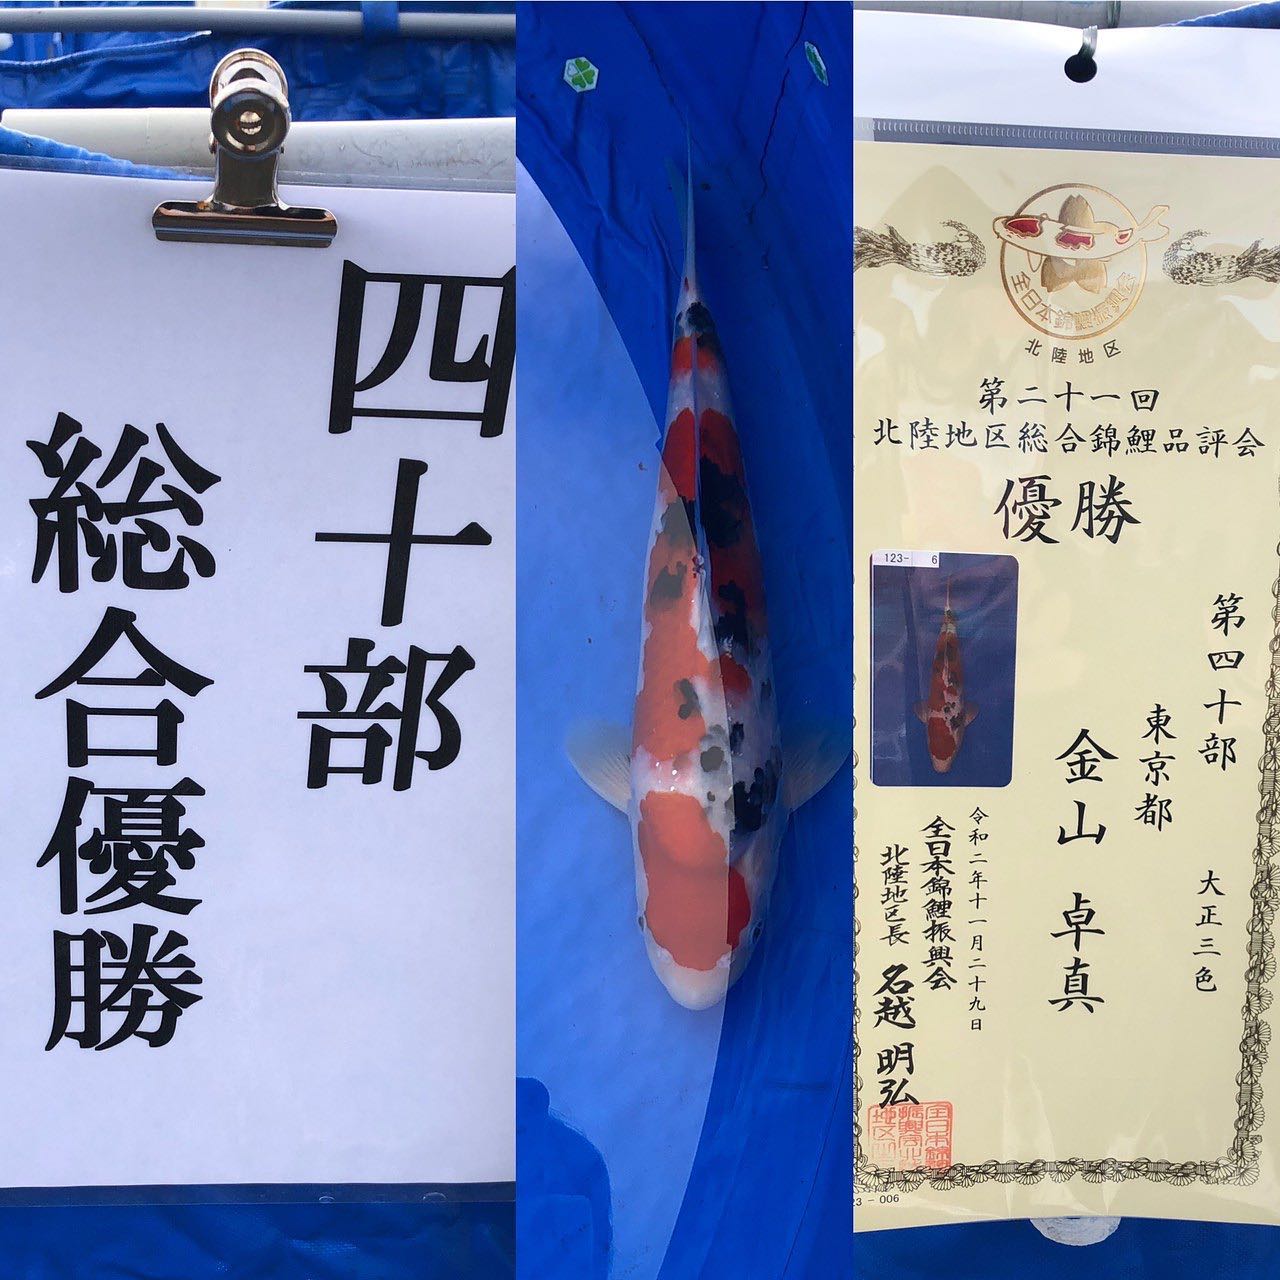 四十部
総合優勝
全日本錦鯉振興会
北陸地区
第二十一回
北陸地区総合錦鯉品評会
優勝
123- 6
第四十部
大正三色
東京都
金山 卓真
令和二年十一月二十九日
全日本錦鯉振興会
北陸地区長 名越 明弘
23-006